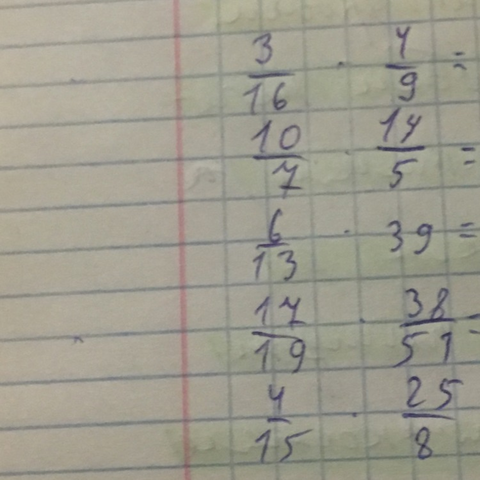 3/16 · 4/9 =
10/7 · 14/5 =
6/13 · 39 =
17/19 · 38/51 =
4/15 · 25/8